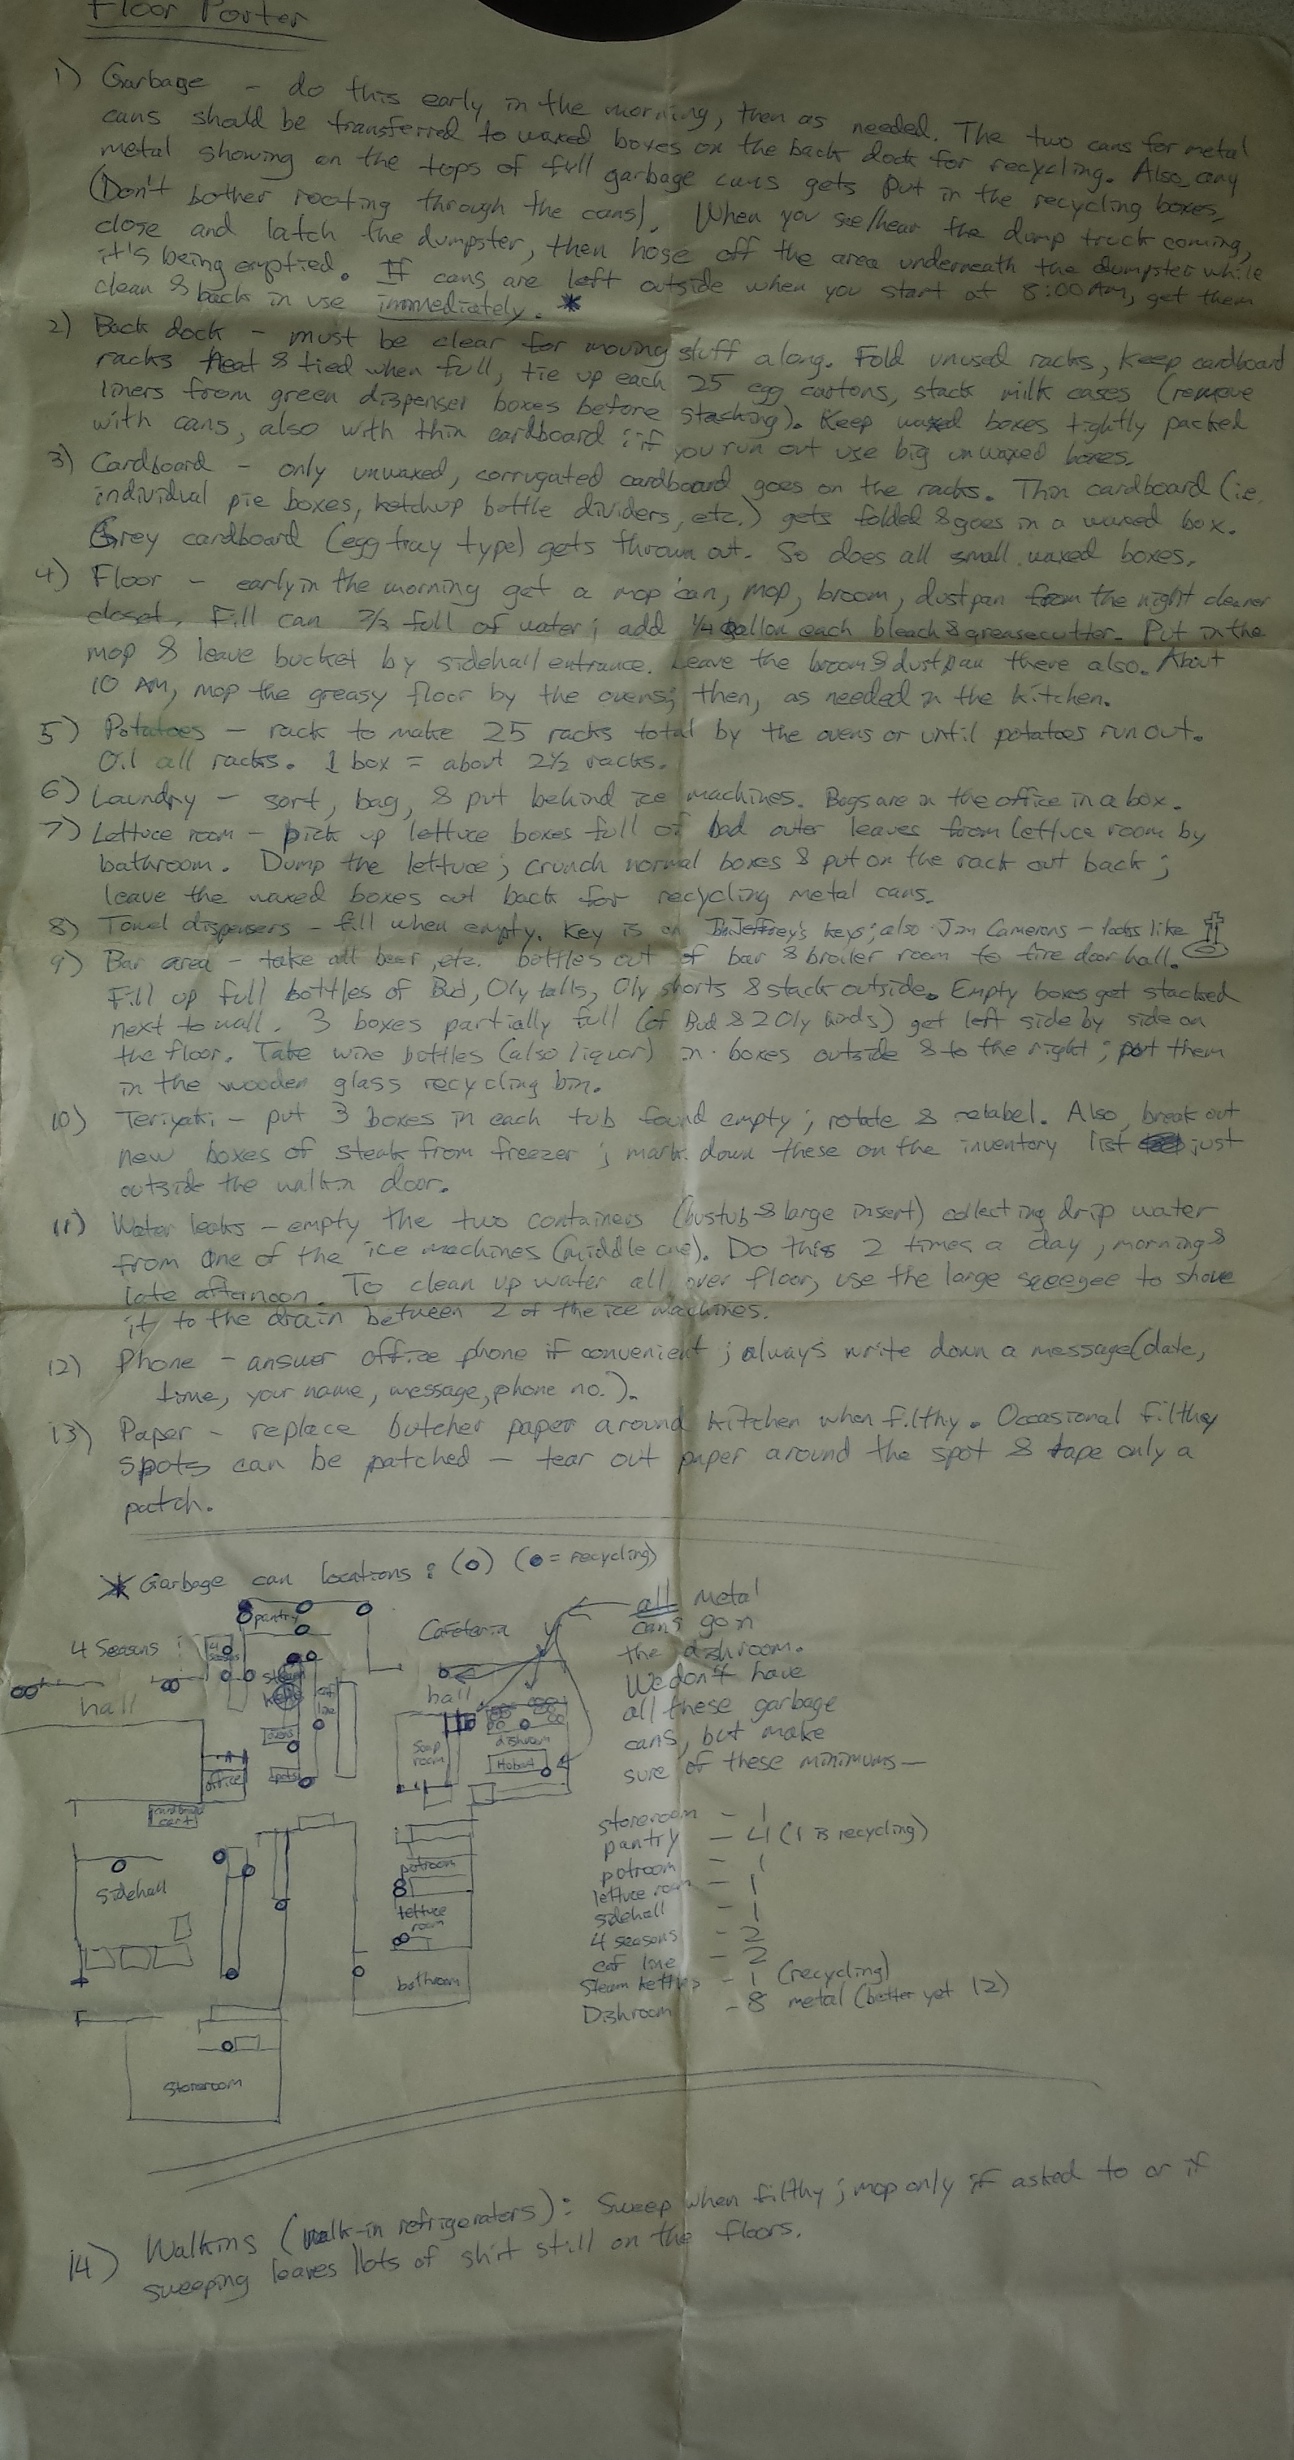 Floor Porter
1) Garbage - do this early in the morning, then as needed. The two cans for metal
cans should be transferred to waxed boxes on the back dock for recycling. Also, any
metal showing on the tops of full garbage cans gets put in the recycling boxes.
(Don't bother rooting through the cans). When you see/hear the dump truck coming,
close and latch the dumpster, then hose off the area underneath the dumpster while
it's being emptied. If cans are left outside when you start at 8:00 AM, get them
clean & back in use immediately. *
2) Back dock - must be clear for moving stuff along. Fold unused racks, keep cardboard
racks neat & tied when full, tie up each 25 egg cartons, stack milk cases (remove
liners from green dispenser boxes before stacking). Keep waxed boxes tightly packed
with cans, also with thin cardboard; if you run out use big unwaxed boxes.
3) Cardboard - only unwaxed, corrugated cardboard goes on the racks. Thin cardboard (ie.
individual pie boxes, ketchup bottle dividers, etc.) gets folded & goes in a waxed box.
Grey cardboard (egg tray type) gets thrown out. So does all small waxed boxes.
4) Floor - early in the morning get a mop can, mop, broom, dustpan from the night cleaner
closet. Fill can 2/3 full of water; add 1/4 gallon each bleach & greasecutter. Put in the
mop & leave bucket by sidehall entrance. Leave the broom & dustpan there also. About
10 AM, mop the greasy floor by the ovens; then, as needed in the kitchen.
5) Potatoes - rack to make 25 racks total by the ovens or until potatoes run out.
Oil all racks. 1 box = about 2 1/2 racks.
6) Laundry - sort, bag, & put behind ice machines. Bags are in the office in a box.
7) Lettuce room - pick up lettuce boxes full of bad outer leaves from lettuce room by
bathroom. Dump the lettuce; crunch normal boxes & put on the rack out back;
leave the waxed boxes out back for recycling metal cans.
8) Towel dispensers - fill when empty. Key is on Jeffrey's keys; also Jim Camerons - looks like
9) Bar area - take all beer, etc. bottles out of bar & broiler room to fire door hall.
Fill up full bottles of Bud, Oly talls, Oly shorts & stack outside. Empty boxes get stacked
next to wall. 3 boxes partially full (of Bud & 2 Oly kinds) get left side by side on
the floor. Take wine bottles (also liquor) in boxes outside & to the right; put them
in the wooden glass recycling bin.
10) Teriyaki - put 3 boxes in each tub found empty; rotate & relabel. Also, break out
new boxes of steak from freezer; mark down these on the inventory list just
outside the walkin door.
11) Water leaks - empty the two containers (bustub & large insert) collecting drip water
from one of the ice machines (middle one). Do this 2 times a day, morning &
late afternoon. To clean up water all over floor, use the large squeegee to shove
it to the drain between 2 of the ice machines.
12) Phone - answer office phone if convenient; always write down a message (date,
time, your name, message, phone no.).
13) Paper - replace butcher paper around kitchen when filthy. Occasional filthy
spots can be patched - tear out paper around the spot & tape only a
patch.
* Garbage can locations: (o) (●= recycling)
pantry
4 Seasons
4 seasons
hall
steam kettles
caf line
ovens
pots
office
cardboard cart
Cafeteria
hall
soap room
dishroom
Hobart
all metal
cans go in
the dishroom.
We don't have
all these garbage
cans, but make
sure of these minimums -
sidehall
potroom
lettuce room
bathroom
storeroom
storeroom - 1
pantry - 4 (1 is recycling)
potroom - 1
lettuce room - 1
sidehall - 1
4 seasons - 2
caf line - 2
Steam kettles - 1 (recycling)
Dishroom - 8 metal (better yet 12)
14) Walkins (walk-in refrigerators): Sweep when filthy; mop only if asked to or if
sweeping leaves lots of shit still on the floors.